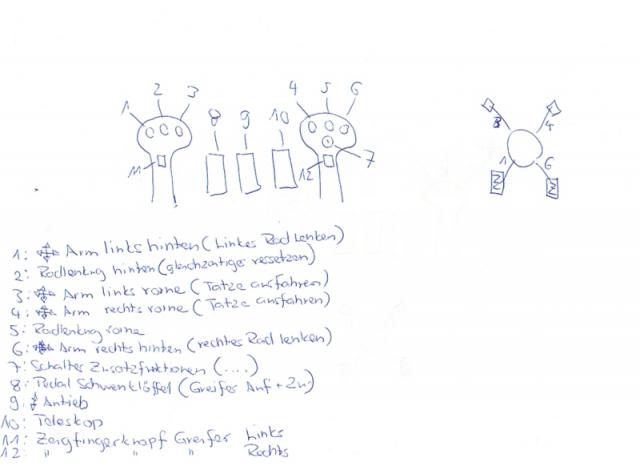 1 2 3 8 9 10 4 5 6
11 12 7
3 4
1 6
1: Arm links hinten (Linkes Rad lenken)
2: Radlenkung hinten (gleichzeitiges
3: Arm links vorne (Tatze ausfahren)
4: Arm rechts vorne (Tatze ausfahren)
5: Radlenkung vorne
6: Arm rechts hinten (rechtes Rad lenken)
7: Schalter Zusatzfunktionen (....)
8: Pedal Schwenklöffel (Greifer Auf + Zu)
9: Antieb
10: Teleskop
11: Zeigfingerknopf Greifer Links
12: " " " Rechts